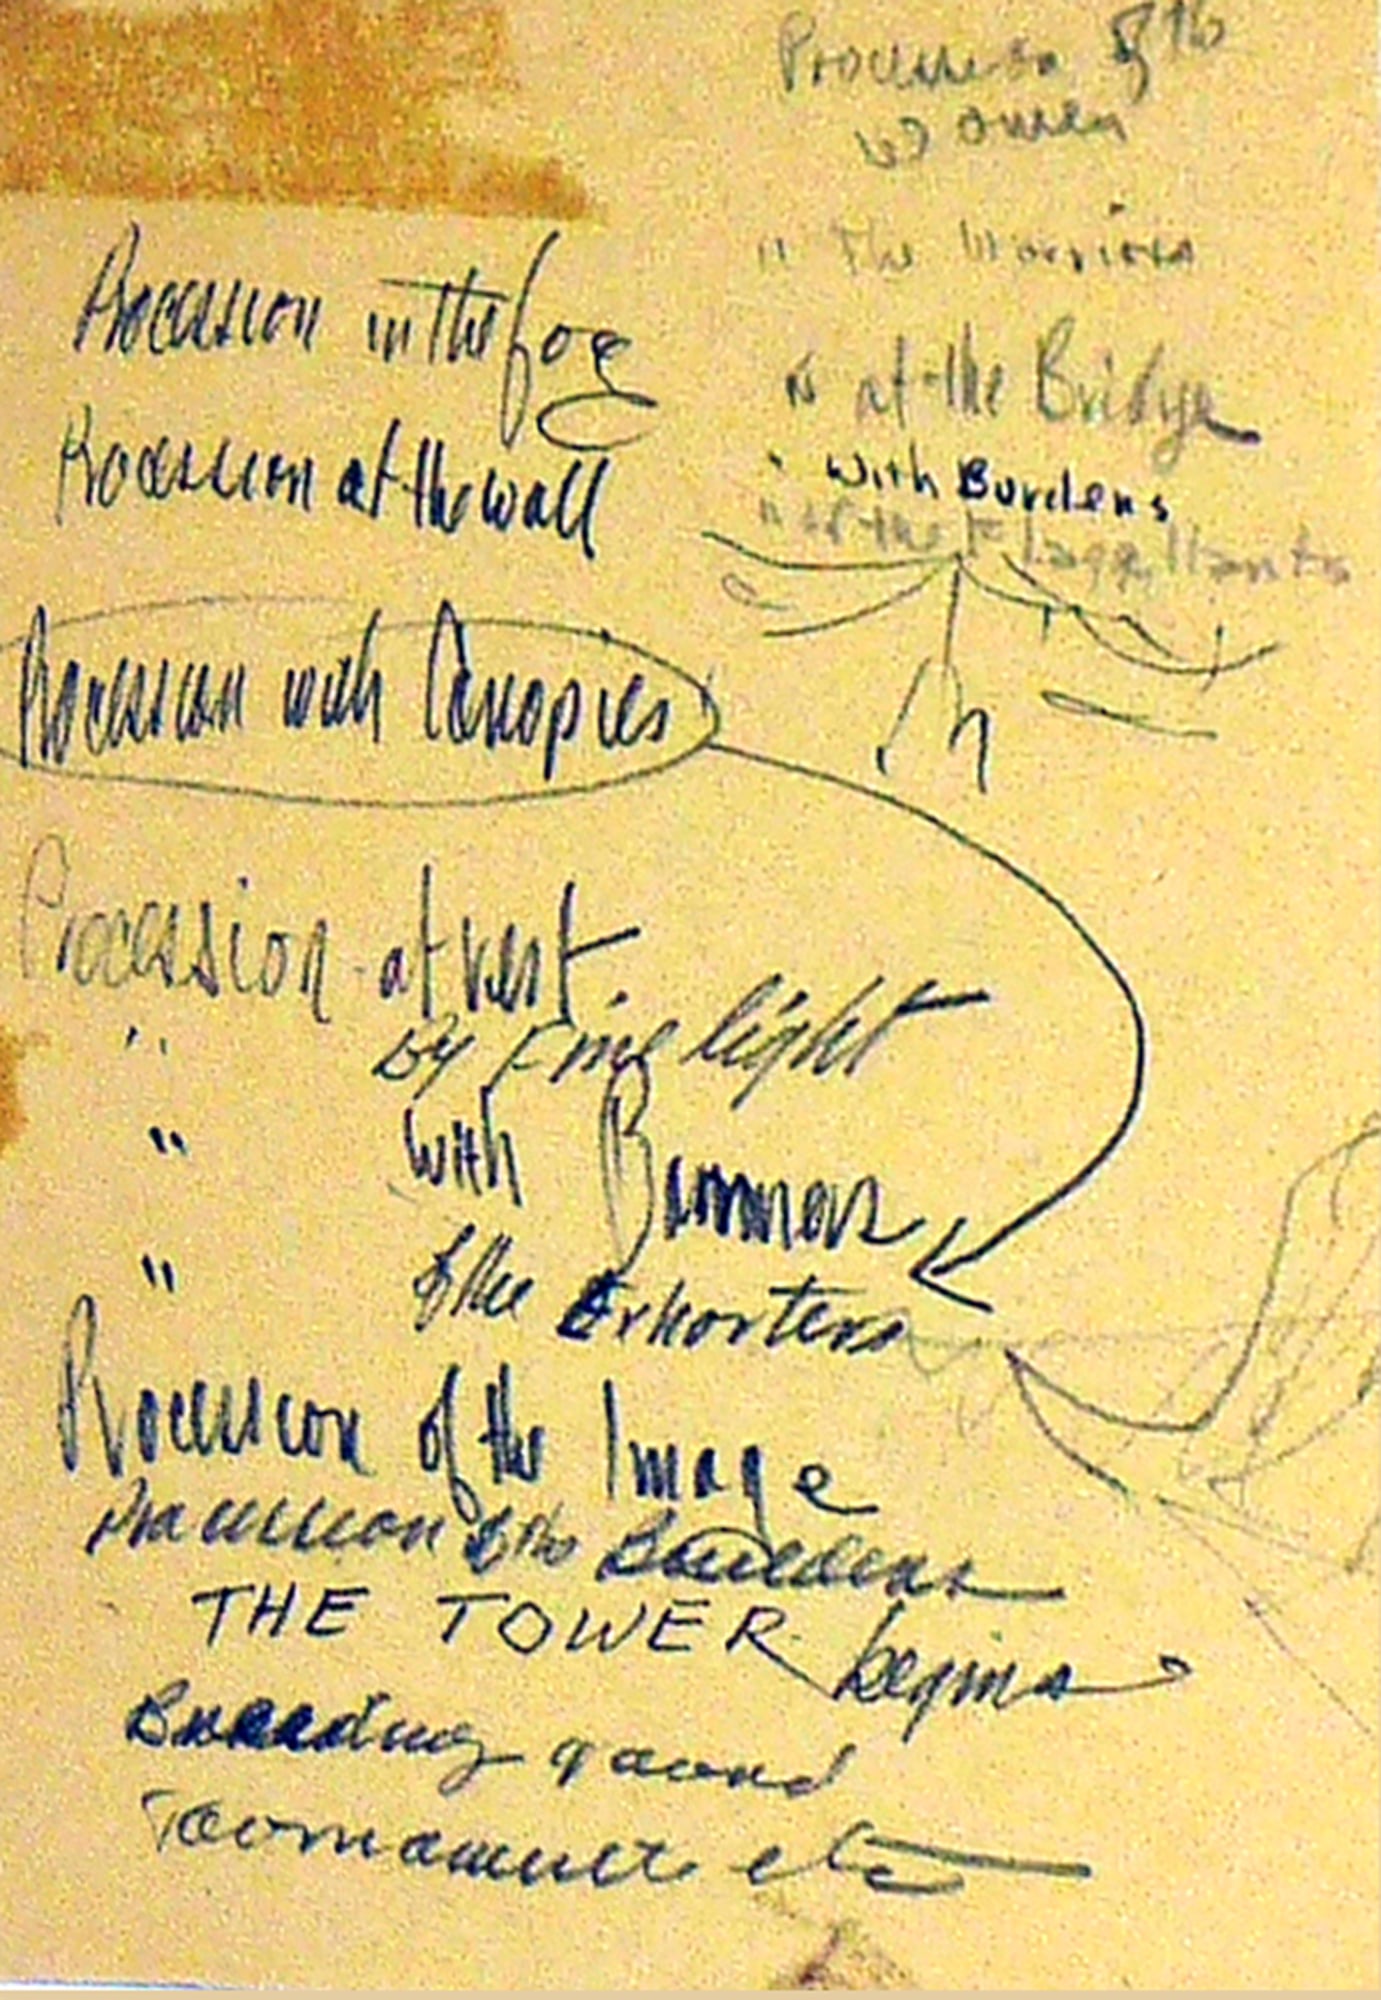 Procession of the
Women
" The Warriors
" at the Bridge
" With Burdens
" of the Flaggellants
Procession in the fog
Procession at the wall
Procession with Canopies
Procession at rest.
" by Fire light
" with Banners
" of the Exhorters
Procession of the Image
Procession of the
THE TOWER begins
ground
etc